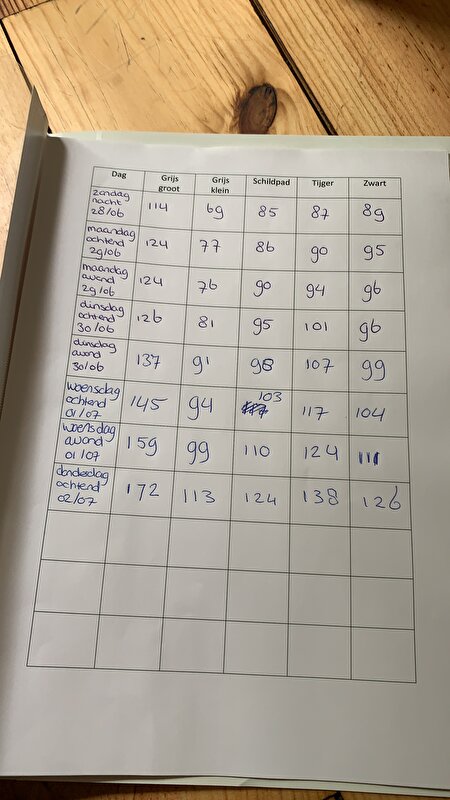 Dag Grijs groot Grijs klein Schildpad Tijger Zwart
zondag nacht 28/06 114 69 85 87 89
maandag ochtend 29/06 124 77 86 90 95
maandag avond 29/06 124 76 90 94 96
dinsdag ochtend 30/06 126 81 95 101 96
dinsdag avond 30/06 137 91 98 107 99
woensdag ochtend 01/07 145 94 103 117 104
woensdag avond 01/07 159 99 110 124 111
donderdag ochtend 02/07 172 113 124 138 126